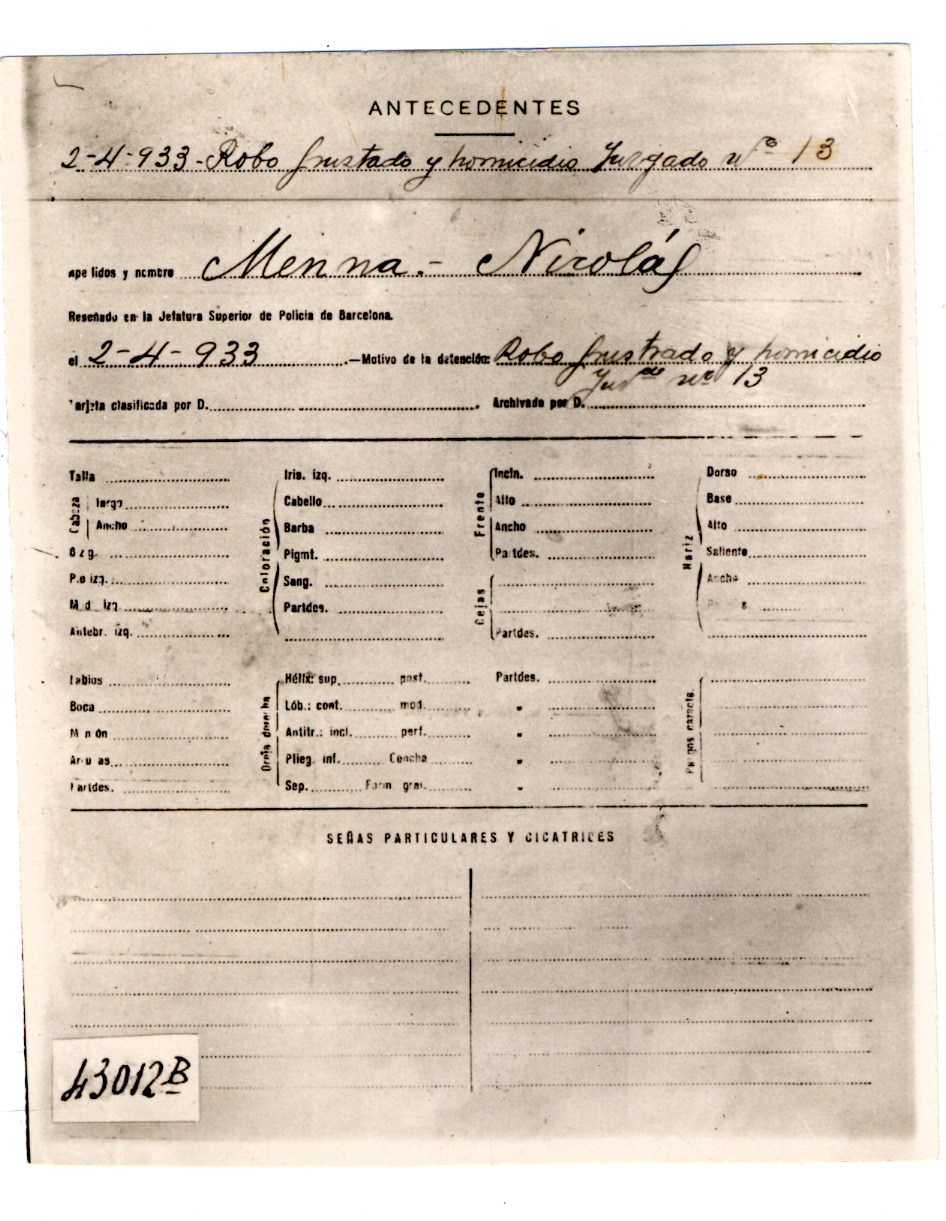 ANTECEDENTES
2-4-933-Robo frustado y homicidio Juzgado nº 13
Apellidos y nombre Menna.- Nicolás
Reseñado en la Jefatura Superior de Policia de Barcelona.
el 2-4-933 .—Motivo de la detención: Robo frustrado y homicidio
Juzdo nº 13
Tarjeta clasificada por D. Archivada por D.
Talla Iris. izq. Incln. Dorso
Cabeza largo Cabello Frente Alto Base
Ancho Coloración Barba Ancho Nariz Alto
Pigmt. Partdes. Saliente
Pie izq. Sang. Cejas Ancho
Partdes.
Antebr. izq. Partdes.
Labios Oreja derecha Hélix: sup. post. Partdes.
Boca Lób.: cont. mod. "
Antitr.: incl. perf. "
Plieg. inf. Concha "
Partdes. Sep. Form gral. "
SEÑAS PARTICULARES Y CICATRICES
43012B